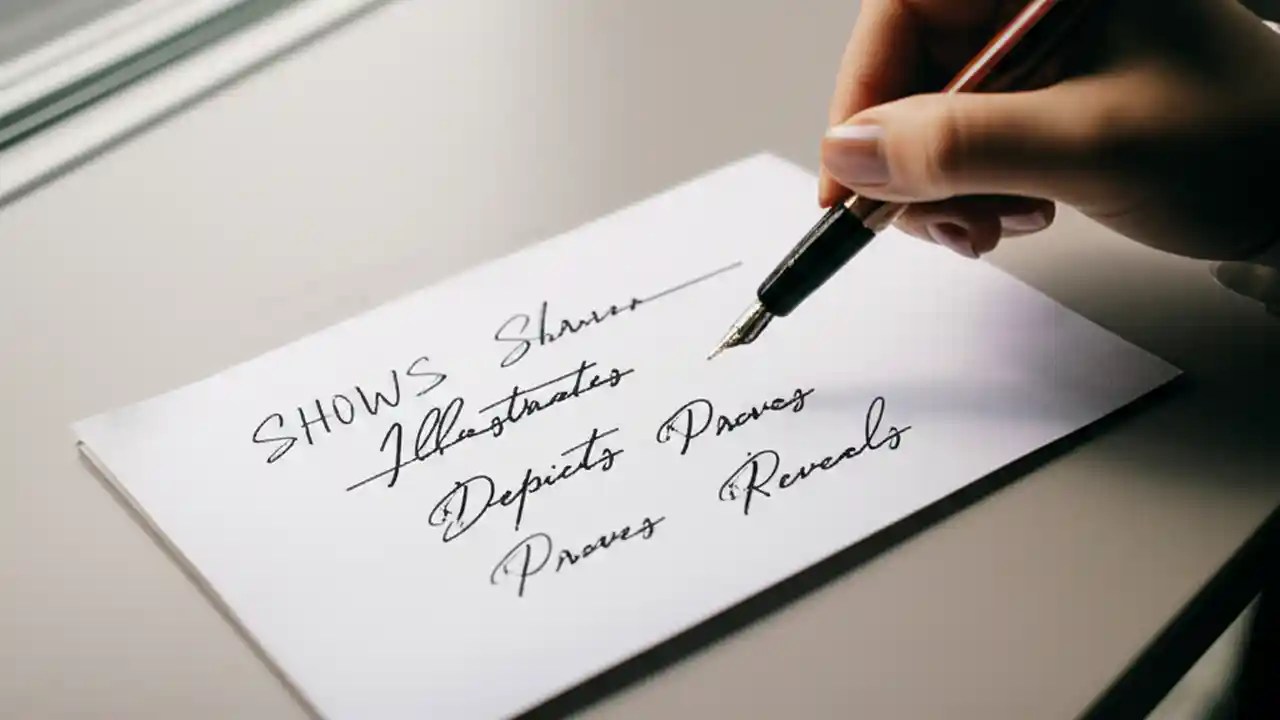 SHOWS Shower
Illustrates
Depicts Proves
Proves Reveals